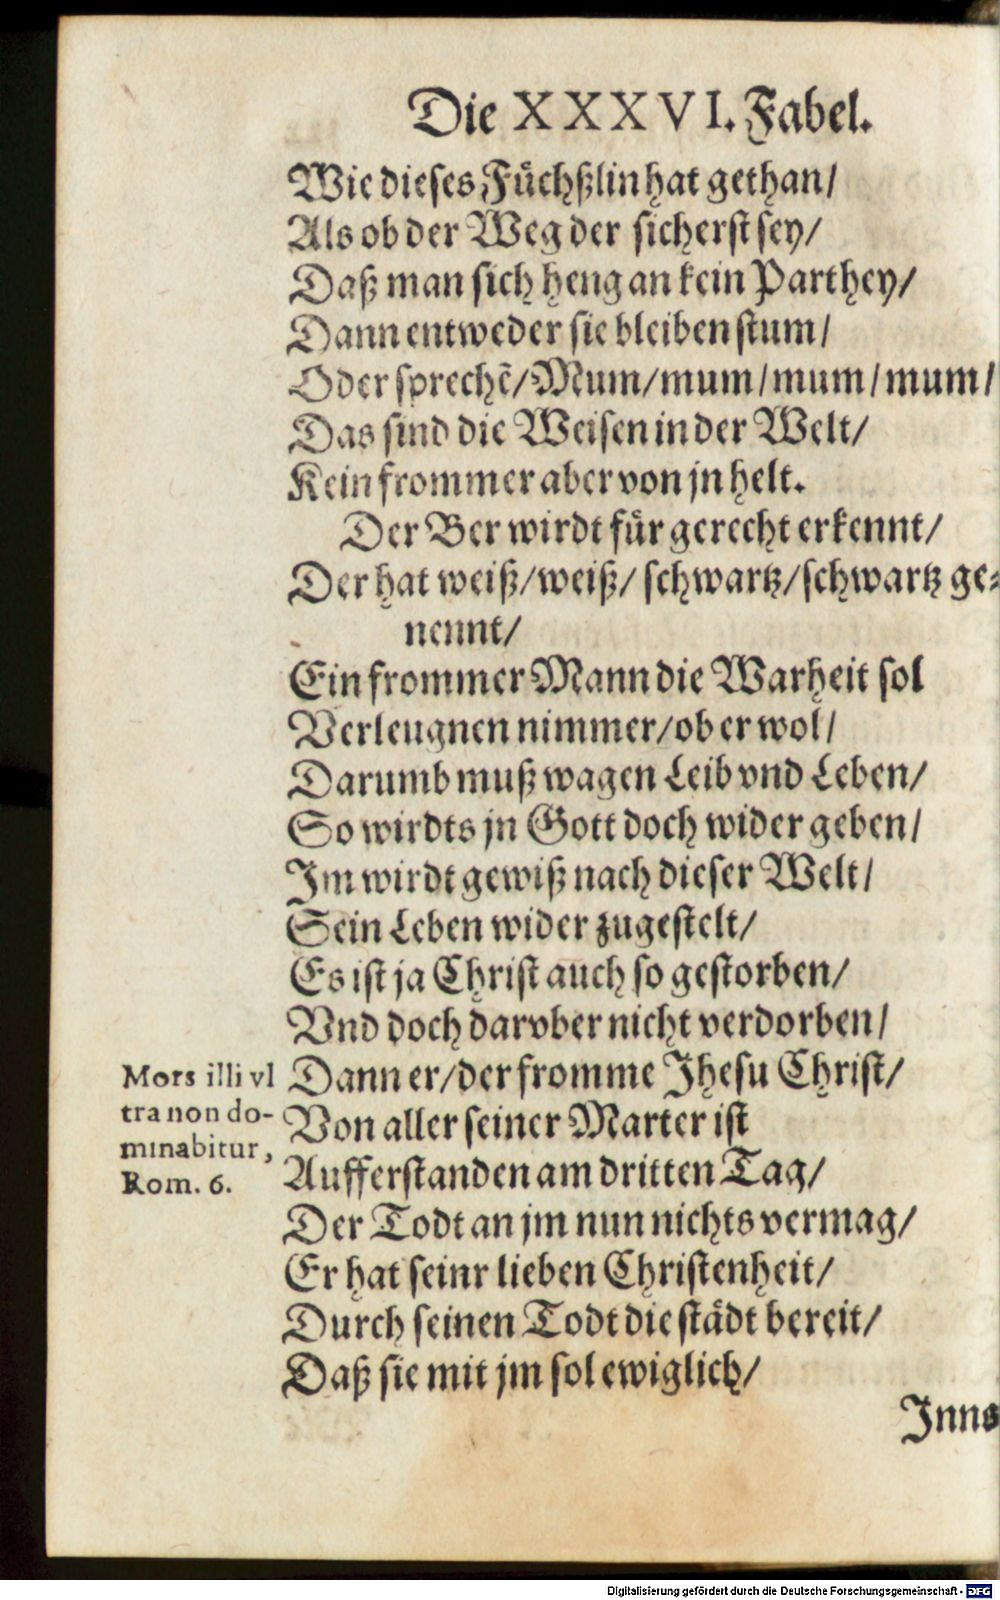 Die XXXVI. Fabel.
Wie dieses Füchßlin hat gethan/
Als ob der Weg der sicherst sey/
Daß man sich heng an kein Parthey/
Dann entweder sie bleiben stum/
Oder sprechẽ/Mum/mum/mum/mum/
Das sind die Weisen in der Welt/
Kein frommer aber von jn helt.
Der Ber wirdt für gerecht erkennt/
Der hat weiß/weiß/ schwartz/schwartz ge-
nennt/
Ein frommer Mann die Warheit sol
Verleugnen nimmer/ob er wol/
Darumb muß wagen Leib vnd Leben/
So wirdts jn Gott doch wider geben/
Jm wirdt gewiß nach dieser Welt/
Sein Leben wider zugestelt/
Es ist ja Christ auch so gestorben/
Vnd doch darvber nicht verdorben/
Mors illi vl
tra non do-
minabitur,
Rom. 6.
Dann er/der fromme Jhesu Christ/
Von aller seiner Marter ist
Aufferstanden am dritten Tag/
Der Todt an jm nun nichts vermag/
Er hat seinr lieben Christenheit/
Durch seinen Todt die städt bereit/
Daß sie mit jm sol ewiglich/
Jnns
Digitalisierung gefördert durch die Deutsche Forschungsgemeinschaft - DFG